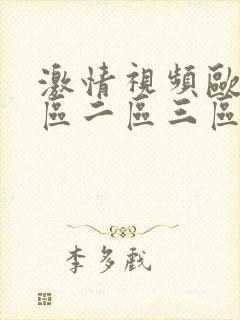 激情視頻歐
區二區三區
李多戲